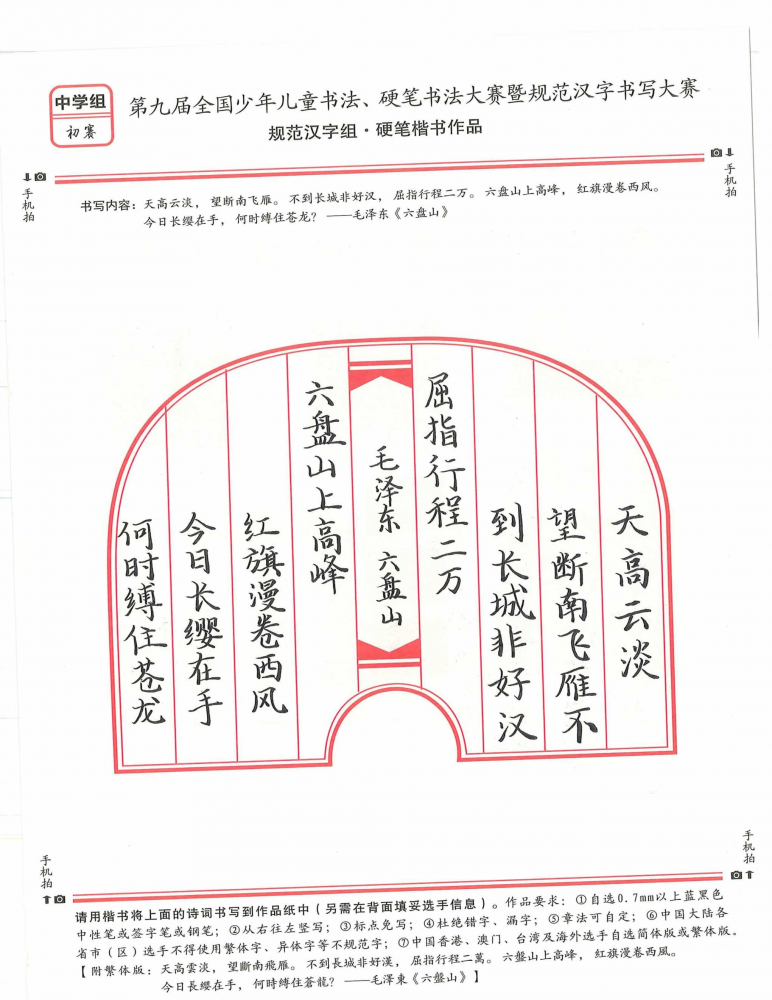 中学组
初赛
第九届全国少年儿童书法、硬笔书法大赛暨规范汉字书写大赛
规范汉字组·硬笔楷书作品
手机拍
手机拍
书写内容：天高云淡，望断南飞雁。不到长城非好汉，屈指行程二万。六盘山上高峰，红旗漫卷西风。
今日长缨在手，何时缚住苍龙？——毛泽东《六盘山》
天高云淡
望断南飞雁不
到长城非好汉
屈指行程二万
毛泽东 六盘山
六盘山上高峰
红旗漫卷西风
今日长缨在手
何时缚住苍龙
手机拍
手机拍
请用楷书将上面的诗词书写到作品纸中（另需在背面填妥选手信息）。作品要求：①自选0.7mm以上蓝黑色
中性笔或签字笔或钢笔；②从右往左竖写；③标点免写；④杜绝错字、漏字；⑤章法可自定；⑥中国大陆各
省市（区）选手不得使用繁体字、异体字等不规范字；⑦中国香港、澳门、台湾及海外选手自选简体版或繁体版。
【附繁体版：天高雲淡，望斷南飛雁。不到長城非好漢，屈指行程二萬。六盤山上高峰，紅旗漫卷西風。
今日長纓在手，何時縛住蒼龍？——毛澤東《六盤山》】